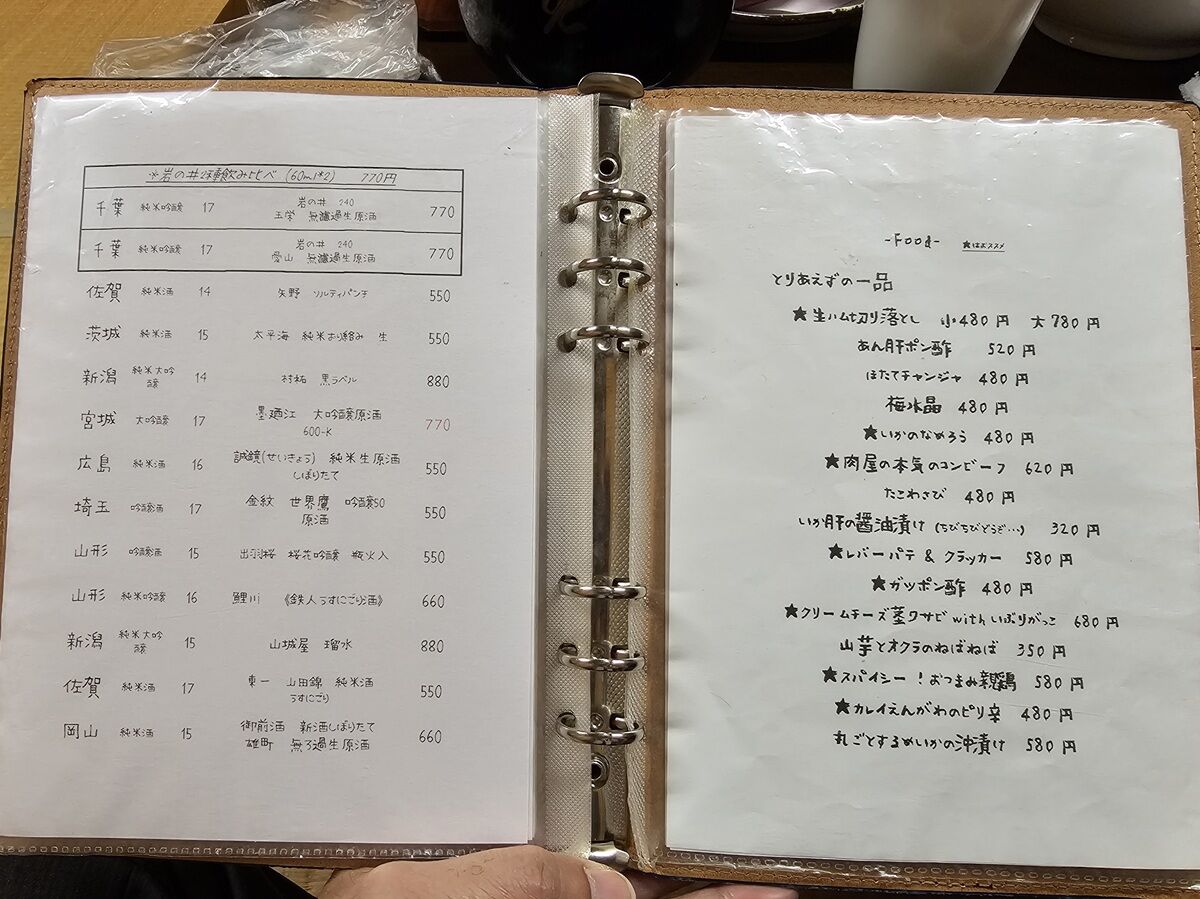 ※岩の井2種飲み比べ (60ml*2) 770円
千葉 純米吟醸 17 岩の井 240 玉栄 無濾過生原酒 770
千葉 純米吟醸 17 岩の井 240 愛山 無濾過生原酒 770
佐賀 純米酒 14 矢野 ソルティパンチ 550
茨城 純米酒 15 太平海 純米おり絡み 生 550
新潟 純米大吟醸 14 村祐 黒ラベル 880
宮城 大吟醸 17 墨廼江 大吟醸原酒 600-K 770
広島 純米酒 16 誠鏡(せいきょう) 純米生原酒 しぼりたて 550
埼玉 吟醸酒 17 金紋 世界鷹 吟醸50 原酒 550
山形 吟醸酒 15 出羽桜 桜花吟醸 瓶火入 550
山形 純米吟醸 16 鯉川 《鉄人うすにごり酒》 660
新潟 純米大吟醸 15 山城屋 瑠水 880
佐賀 純米酒 17 東一 山田錦 純米酒 うすにごり 550
岡山 純米酒 15 御前酒 新酒しぼりたて 雄町 無ろ過生原酒 660
-Food- ★はオススメ
とりあえずの一品
★生ハム切り落とし 小480円 大780円
あん肝ポン酢 520円
ほたてチャンジャ 480円
梅水晶 480円
★いかのなめろう 480円
★肉屋の本気のコンビーフ 620円
たこわさび 480円
いか肝の醤油漬け (ちびちびどうぞ…) 320円
★レバーパテ & クラッカー 580円
★ガツポン酢 480円
★クリームチーズ茎ワサビ with いぶりがっこ 680円
山芋とオクラのねばねば 350円
★スパイシー!おつまみ親鶏 580円
★カレイえんがわのピリ辛 480円
丸ごとするめいかの沖漬け 580円